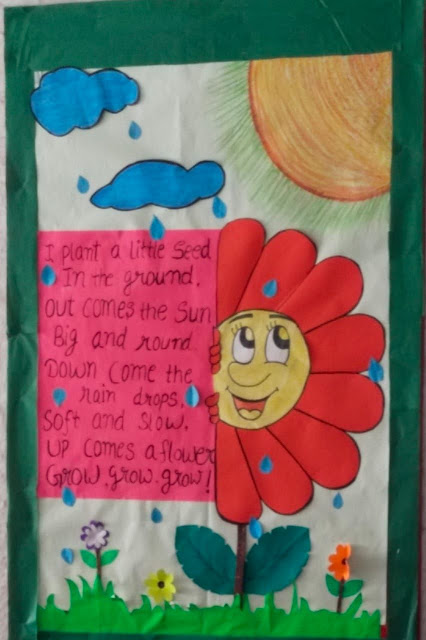 I plant a little Seed
In the ground.
Out comes the Sun
Big and round
Down come the
rain drops,
Soft and slow.
Up comes a flower
Grow, grow, grow!